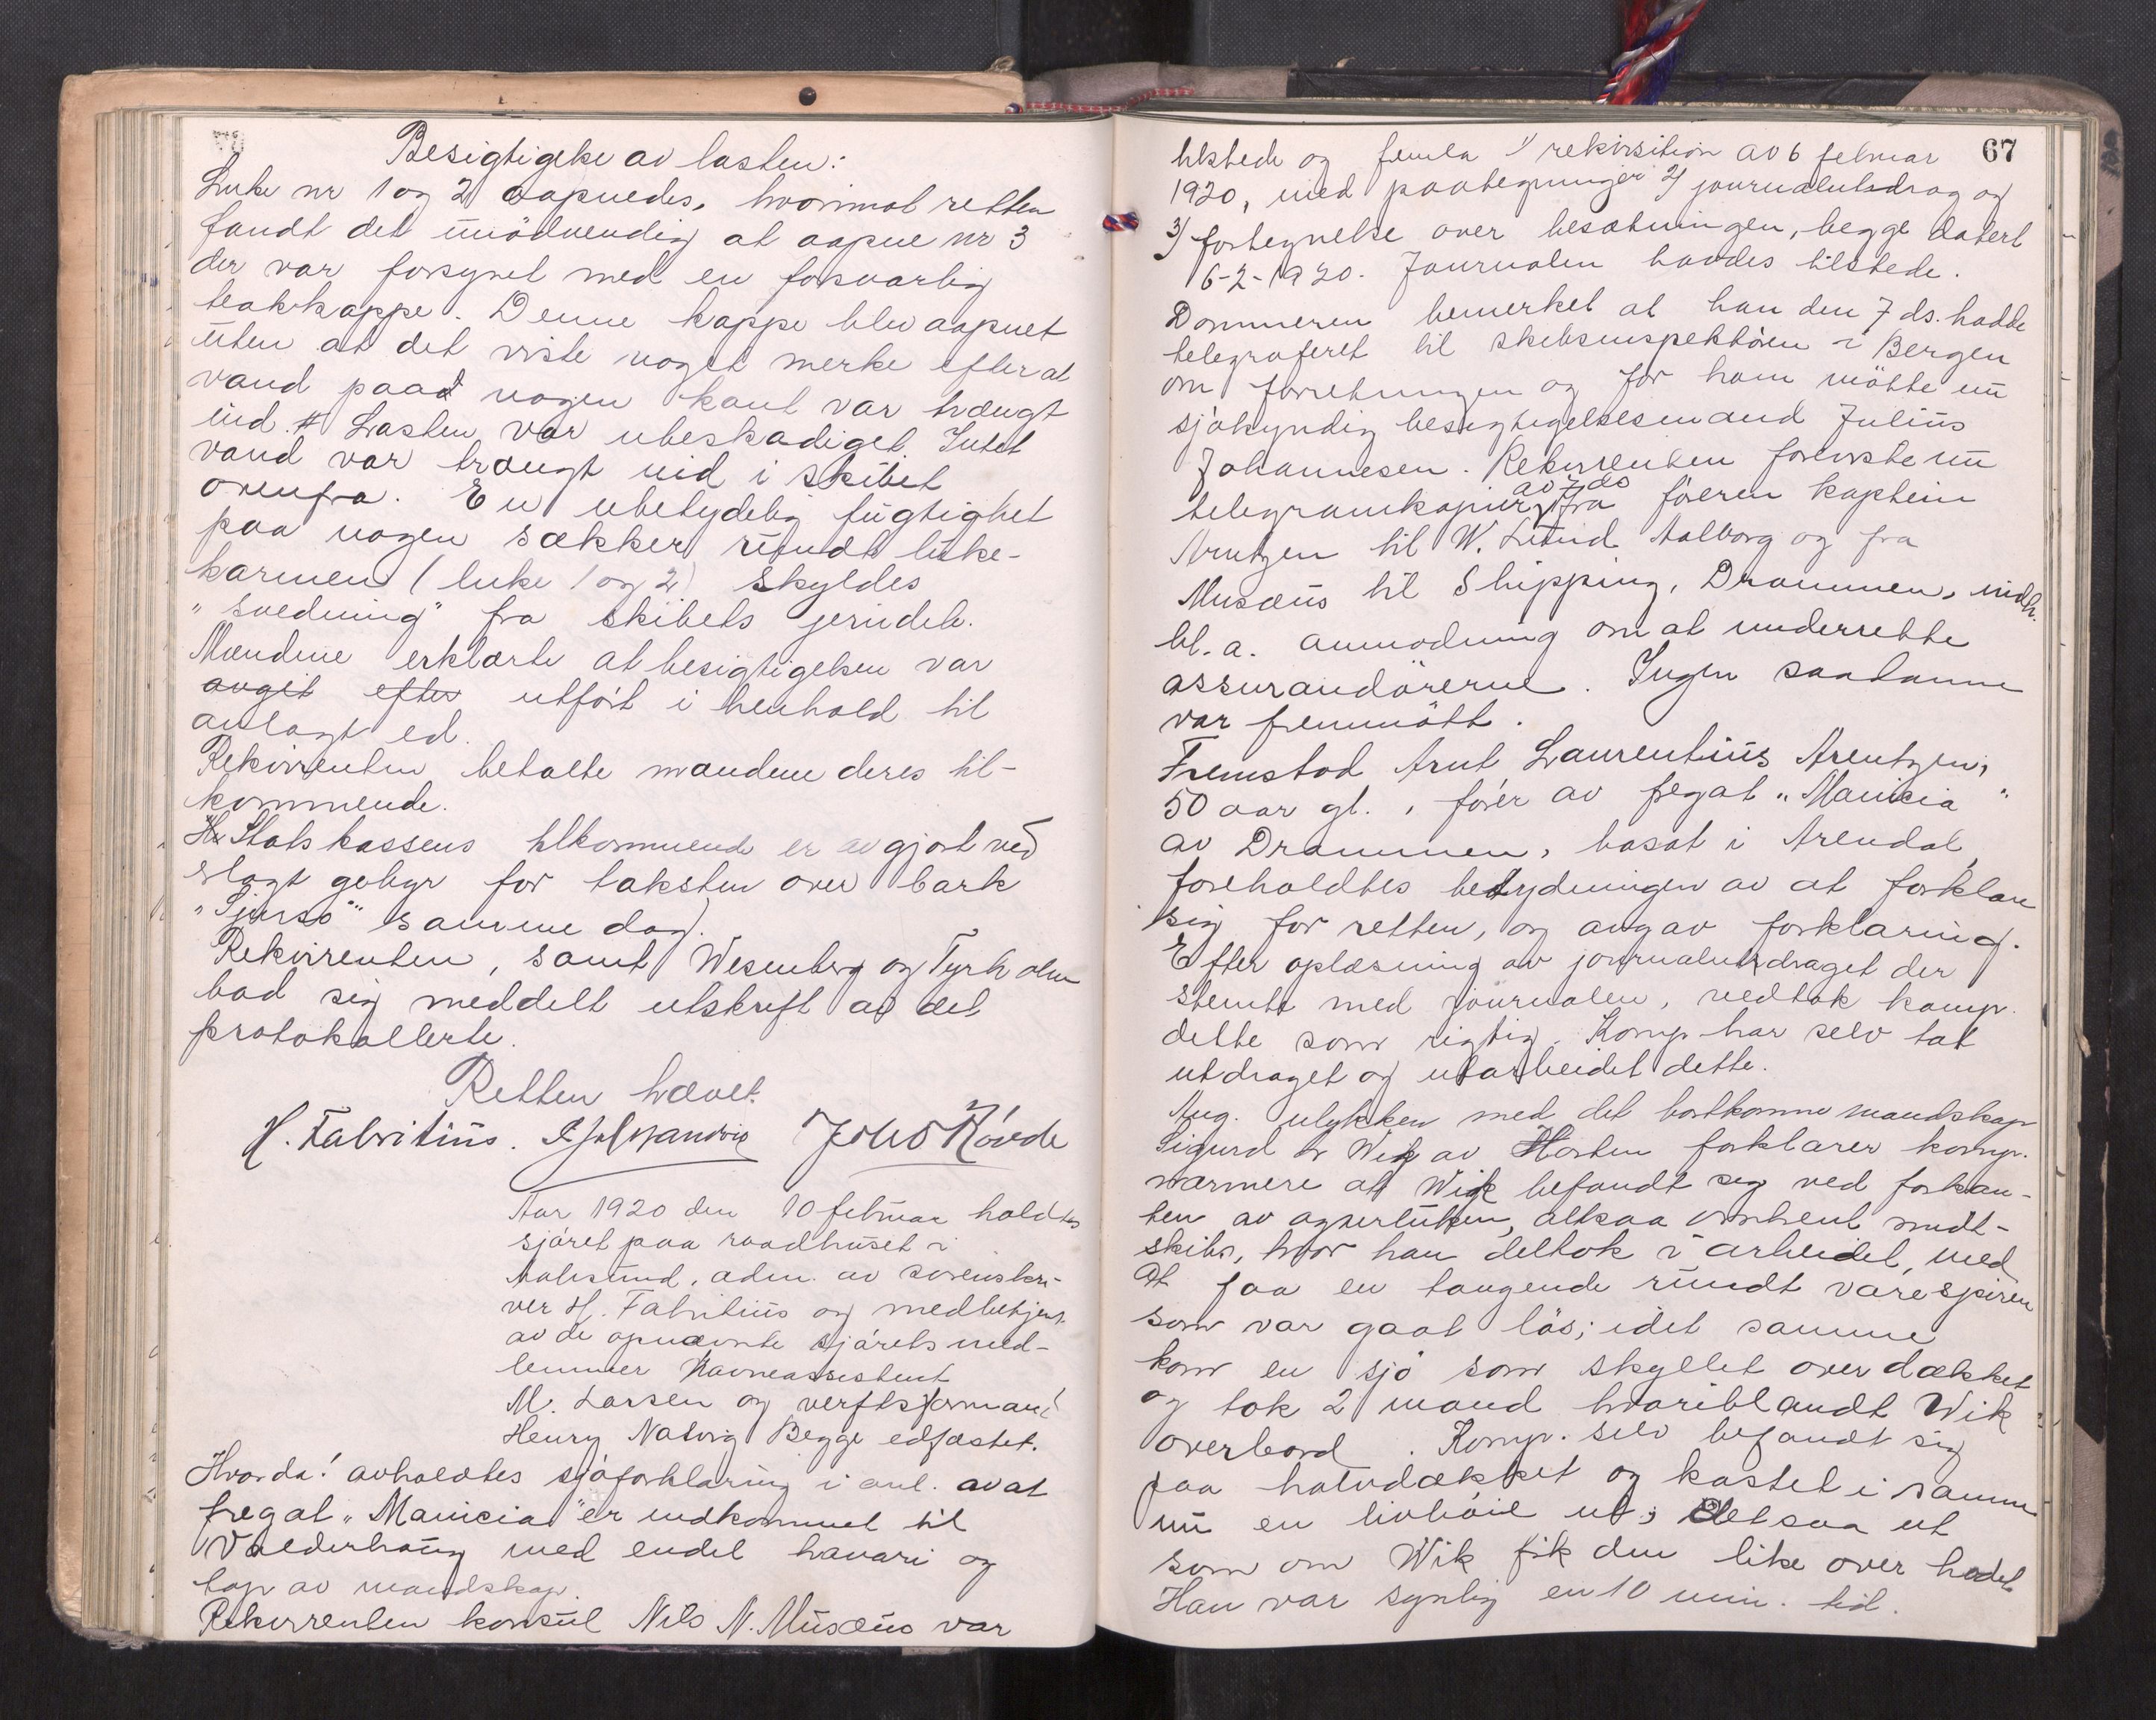 Besigtigelse av lasten:
Luke nr 1 og 2 aapnedes, hvorimot retten
fandt det unödvendig at aapne nr 3
der var forsynet med en forsvarlig
teakkappe. Denne kappe blev aapnet
uten at det viste noget merke efter at
vand paa nogen kant var trængt
ind. Lasten var ubeskadiget. Intet
vand var trængt ned i skibet
ovenfra. En ubetydelig fugtighet
paa nogen sækker rundt luke-
karmen (luke 1 og 2) skyldes
"svedning" fra skibets jerndele.
Mændene erklærte at besigtigelsen var
avgit efter utført i henhold til
avlagt ed.
Rekvirenten betalte mændene deres til-
kommende.
Statskassens tilkommende er avgjort ved
erlagt gebyr for taksten over bark
samme dag.
Rekvirenten, samt Wesenberg og Tyrholm
bad sig meddelt utskrift av det
protokollerte.
Retten hævet.
H. Fabritius. Johs Hövde
Aar 1920 den 10 februar holdtes
sjøret paa raadhuset i
Aalesund, adm. av sorenskri-
ver H. Fabritius og medbetjent
av de opnævnte sjørets med-
lemmer havneassistent
M. Larsen og verftsformand
Henry Natvig Begge edfæstet.
Hvorda! avholdtes sjøforklaring i anl. av at
fregat "Manicia" er indkommet til
Valderhaug med endel havari og
tap av mandskap.
Rekvirenten konsul Nils N. Musæus var
67
tilstede og fremla 1/ rekvisition av 6 februar
1920, med paategninger 2/ journalutdrag og
3/ fortegnelse over besætningen, begge datert
6-2-1920. Journalen havdes tilstede.
Dommeren bemerket at han den 7 ds. hadde
telegraferet til skibsinspektören i Bergen
om forretningen og for ham mötte nu
sjökyndig besigtigelsesmand Julius
Johannesen. Rekvirenten foreviste nu
telegramkopier av 7 ds fra føreren kaptein
Arntzen til W. Lund Aalborg og fra
Musæus til Shipping, Drammen, indh.
bl. a. anmodning om at underrette
assurandörerne. Ingen saadanne
var fremmött.
Fremstod Arnt Laurentius Arentzen,
50 aar gl., fører av fregat "Manicia"
av Drammen, bosat i Arendal,
foreholdtes betydningen av at forklare
sig for retten, og avgav forklaring.
Efter oplæsning av journalutdraget der
stemte med journalen, vedtok komp.
dette som rigtig. Komp har selv tat
utdraget og utarbeidet dette.
Ang. ulykken med det bortkomne mandskap
Sigurd Wik av Horten forklarer komp.
nærmere at Wik befandt sig ved forkan-
ten av agterluken, altsaa omtrent midt-
skibs, hvor han deltok i arbeidet, med
at faa en taugende rundt varespiren
som var gaat lös; idet samme
kom en sjø som skyllet over dækket
og tok 2 mand hvoriblandt Wik
overbord. Komp. selv befandt sig
paa halvdækket og kastet i samme
nu en livböie ut; det saa ut
som om Wik fik den like over hodet
Han var synlig en 10 min. tid.